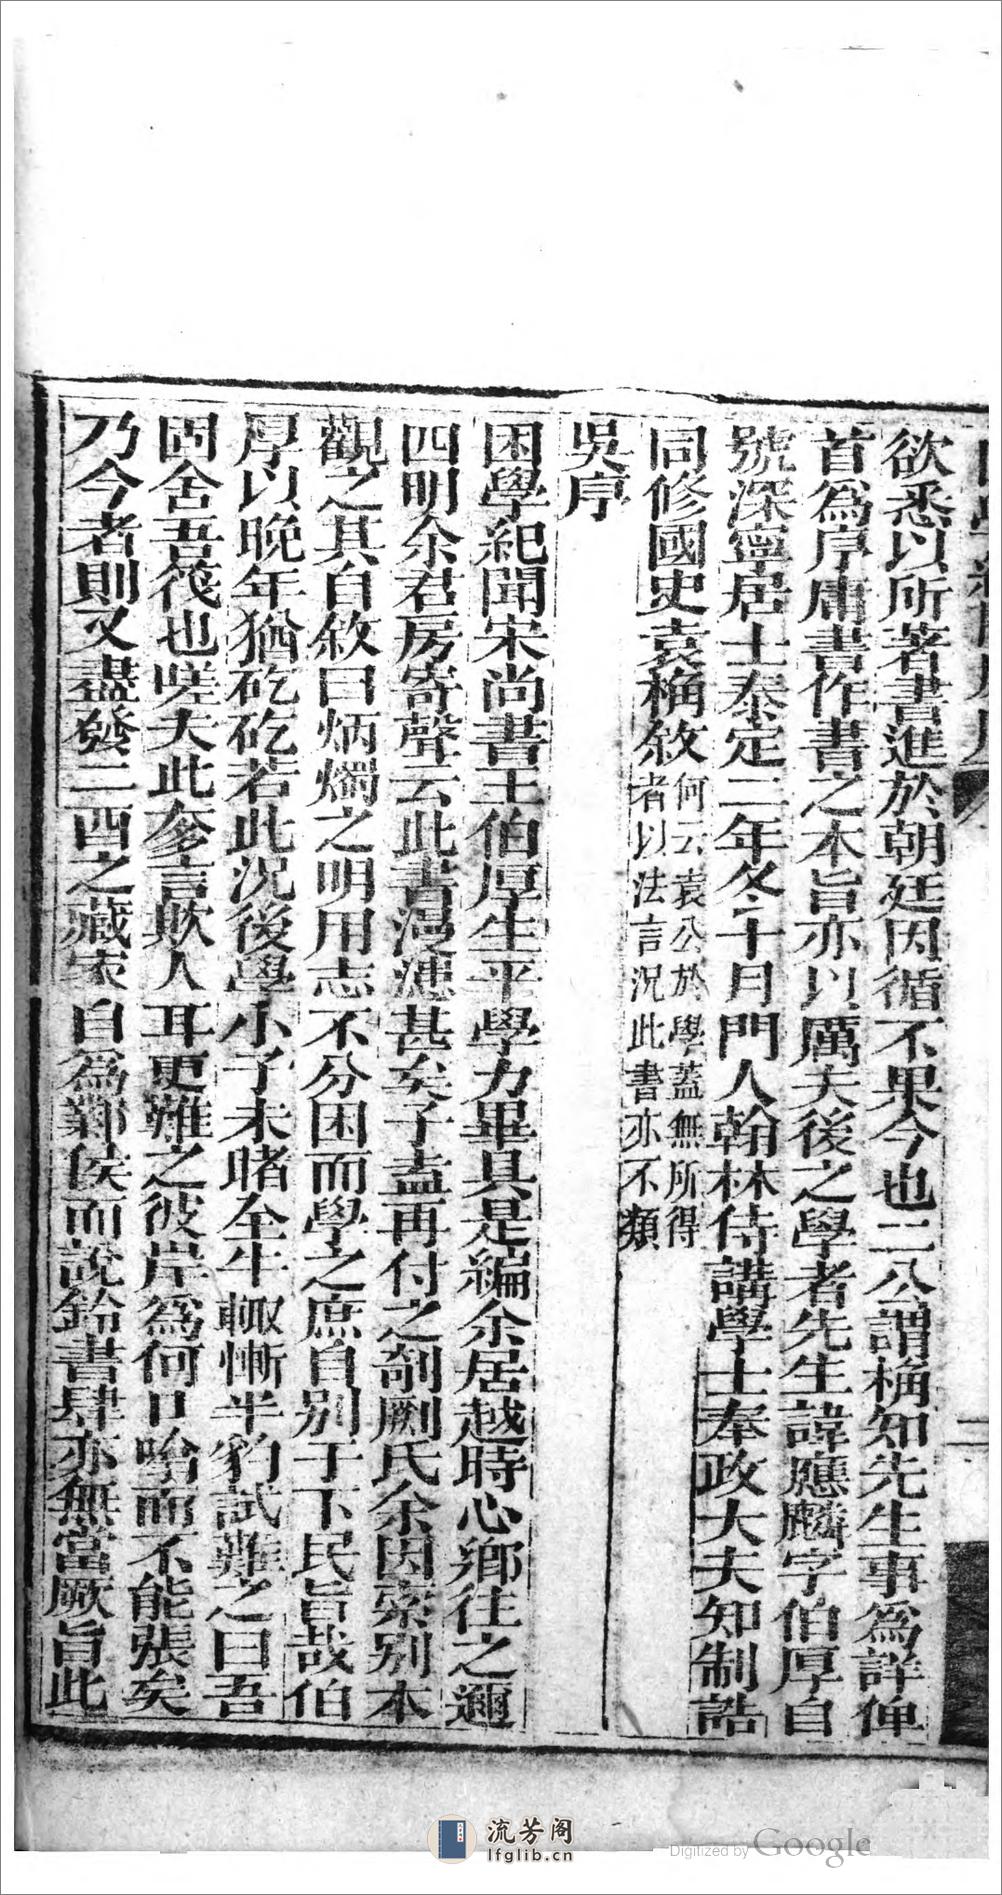 欲悉以所著書進於朝廷因循不果今也二公謂桷知先生事為詳俾
首為序庸書作書之本旨亦以厲夫後之學者先生諱應麟字伯厚自
號深寧居士泰定二年冬十月門人翰林侍講學士奉政大夫知制誥
同修國史袁桷敘何云袁公於學蓋無所得
者以法言況此書亦不類
吳序
困學紀聞宋尚書王伯厚生平學力畢具是編余居越時心鄉往之邇
四明余君房寄聲云此書漫漶甚矣子盍再付之剞劂氏余因索別本
觀之其自敘曰炳燭之明用志不分困而學之庶自別于下民旨哉伯
厚以晚年猶矻矻若此況後學小子未睹全牛輒慚半豹試難之曰吾
固舍吾筏也嗟夫此夸言欺人耳更難之彼岸為何口嗋而不能張矣
乃今者則又盡發二酉之藏家自為鄴侯而說鈴書肆亦無當厥旨此
流芳阁
lfglib.cn
Digitized by Google